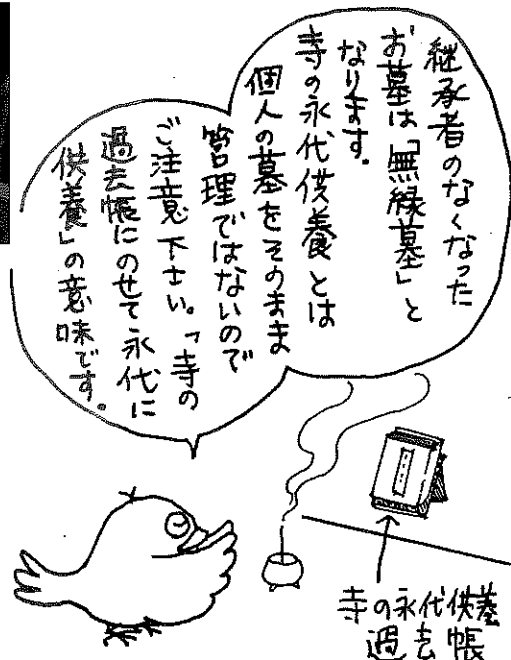 継承者のなくなった
お墓は「無縁墓」と
なります。
寺の永代供養とは
個人の墓をそのまま
管理ではないので
ご注意下さい。「寺の
過去帳にのせて永代に
供養」の意味です。
寺の永代供養
過去帳